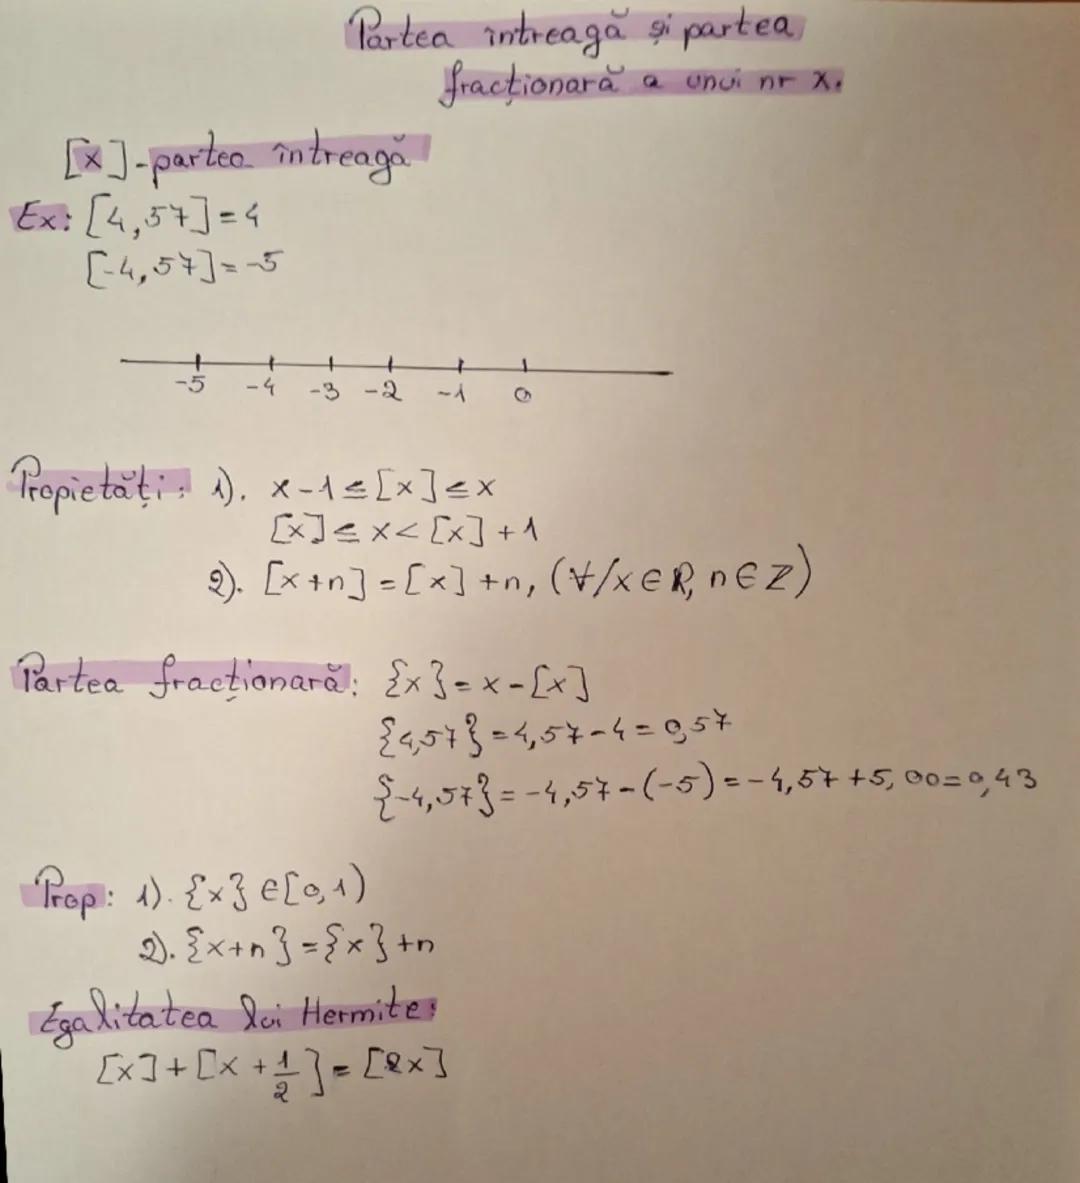 Partea întreagă și partea
fracționară a unui nr x.
[x]-partea întreagă
Ex: [4,57]=4
[-4,57]=-5
-5 -4 -3 -2 -1 0
Propietăți: 1). x-1≤[x]≤x
[x]≤x<[x]+1
2). [x+n]=[x]+n, (∀/x∈R, n∈Z)
Partea fracționară: {x}=x-[x]
{4,57}=4,57-4=0,57
{-4,57}=-4,57-(-5)=-4,57+5,00=0,43
Prop: 1). {x}∈[0,1)
2). {x+n}={x}+n
Egalitatea lui Hermite:
[x]+[x+1/2]=[2x]